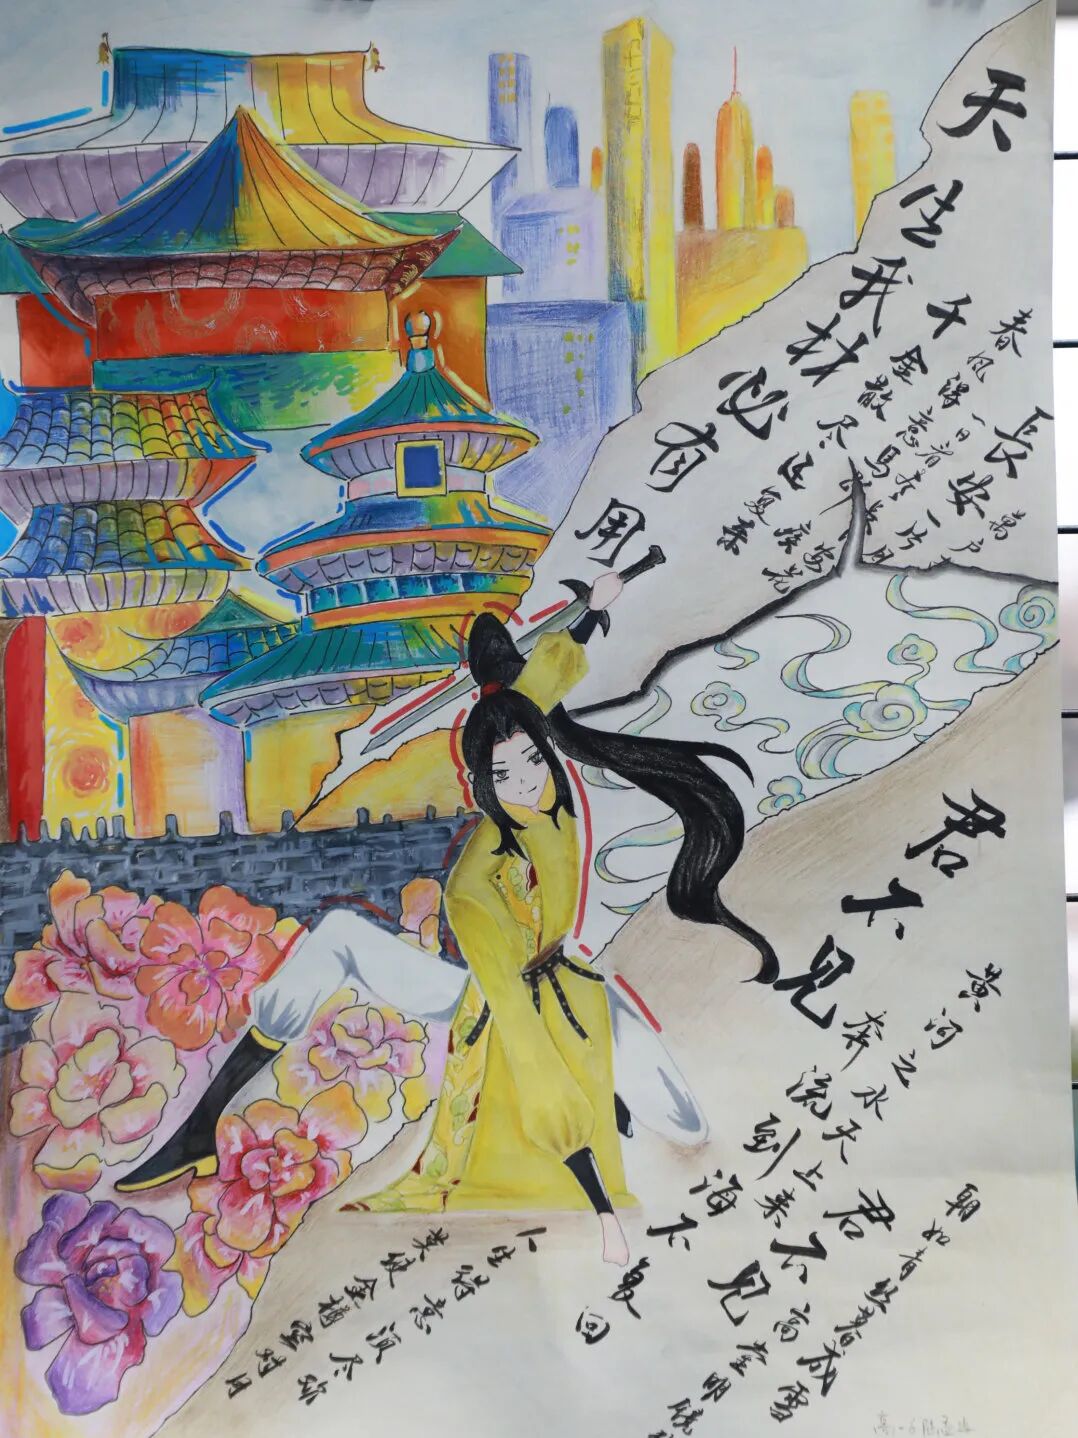 天生我材必有用
千金散尽还复来
春风得意马蹄疾
一日看尽
安花
長安一片月
萬户
君不见
黄河之水天上来
奔流到海不复回
君不见
高堂明鏡
朝如青丝暮成雪
人生得意须尽欢
莫使金樽空对月
高一6